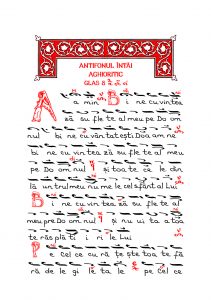 ANTIFONUL ÎNTÂI
AGHIORITIC
GLAS 8
A a min B i ne cu vintea
ză su fle te al meu pe Do om
nul bi ne cu vân ta tești Doa am ne
bi ne cu vin tea ză su fle te al meu
pe Do om nul și toa te ce le din
lă un trul meu nu me le cel sfânt al Lui
B i ne cu vin tea ză su fle te al
meu pre Do om nul și nu ui ta a toa
te răs plă ti i ri le Lui
P e Cel ce cu ră țe ște toa te fă
ră de le gi le ta le pe Cel ce